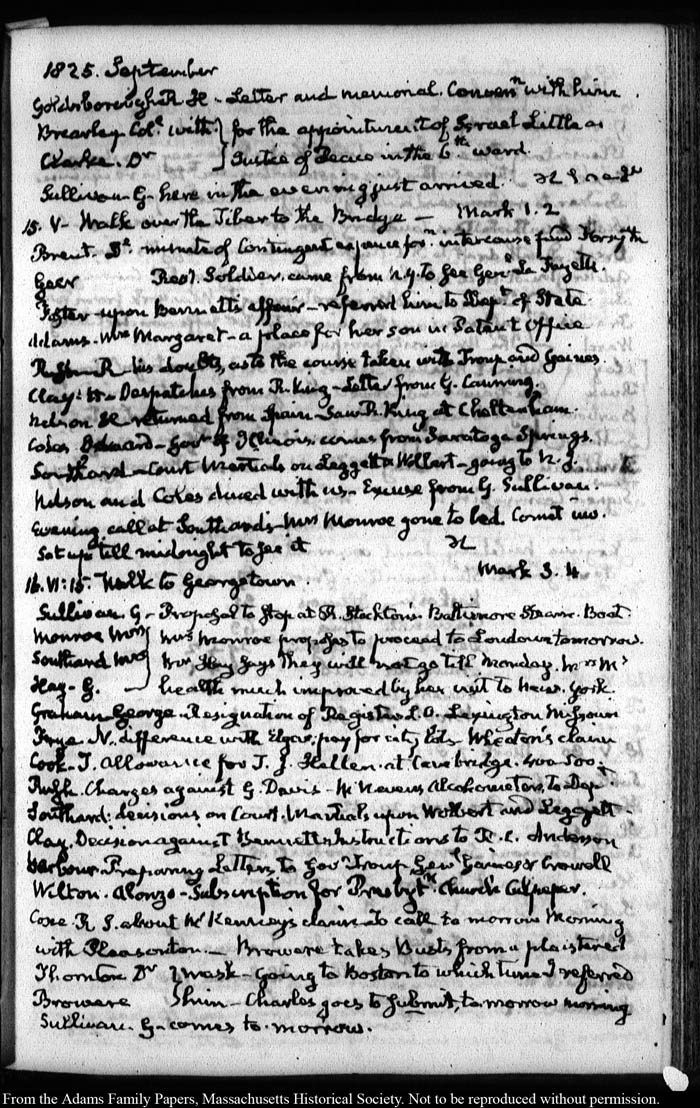 1825. September
Goldsborough H - Letter and memorial. Conversn with him
Brearley Col.l with } for the appointment of Israel Little as
Clarke. Dr } Justice of Peace in the 6th ward.
Sullivan. G. here in the evening just arrived.
15. V- Walk over the Tiber to the Bridge — Mark 1. 2
Brent. D.l minute of Contingent expence for.n intercourse fund Forsyth
Geer Rev.l Soldier, came from N.Y. to see Gen.l La Fayette.
Foster - upon Bennett's affair - referred him to Dep.t of State
Adams. Mrs Margaret - a place for her son in Patent Office
Rush R his doubts, as to the course taken with Troup and Gaines.
Clay: H - Despatches from R. King - Letter from G. Canning.
Nelson H returned from Spain - Saw R. King at Cheltenham.
Coles Edward - Gov.r of Illinois. comes from Saratoga Springs.
Southard - Court Martials on Leggett & Wolbert - going to N. J.
Nelson and Coles dined with us - Excuse from G. Sullivan.
Evening call at Southard's - Mrs Monroe gone to bed. Comet inv.
Set up till midnight to see it
Mark 3. 4
16. VI: 15. Walk to Georgetown
Sullivan. G - Proposal to stop at R. Stockton's. Baltimore Steam-Boat
Monroe Mrs } Mrs Monroe proposes to proceed to Loudoun tomorrow.
Southard Mrs } Mrs Hay says they will not go till Monday. Mrs M's
Hay - G. — health much improved by her visit to New-York.
Graham George - Resignation of Register L.O. Lexington Missouri
Frye N. difference with Elgar: pay for city lots Wheaton's claim
Cook. T. Allowance for T. J. at Cambridge. 400 - 500.
Pugh. Charges against G. Davis - Alcohometers, to Dep.t
Southard: decisions on Court. Martials upon Wolbert and Leggett -
Clay, Decision against Bennett. Instructions to R. C. Anderson
Barbour. Preparing Letters to Gov.r Troup Gen.l Gaines & Crowell
Wilton. Alonzo - Subscription for Presbyt.n Church Culpeper.
Coxe R S. about McKenney's claim To call to morrow Morning
with Pleasonton. — Browere takes Busts from a plaistered
Thornton Dr } mask - going to Boston to which time I referred
Browere him - Charles goes to submit, to-morrow morning
Sullivan. G - comes to-morrow.
From the Adams Family Papers, Massachusetts Historical Society. Not to be reproduced without permission.